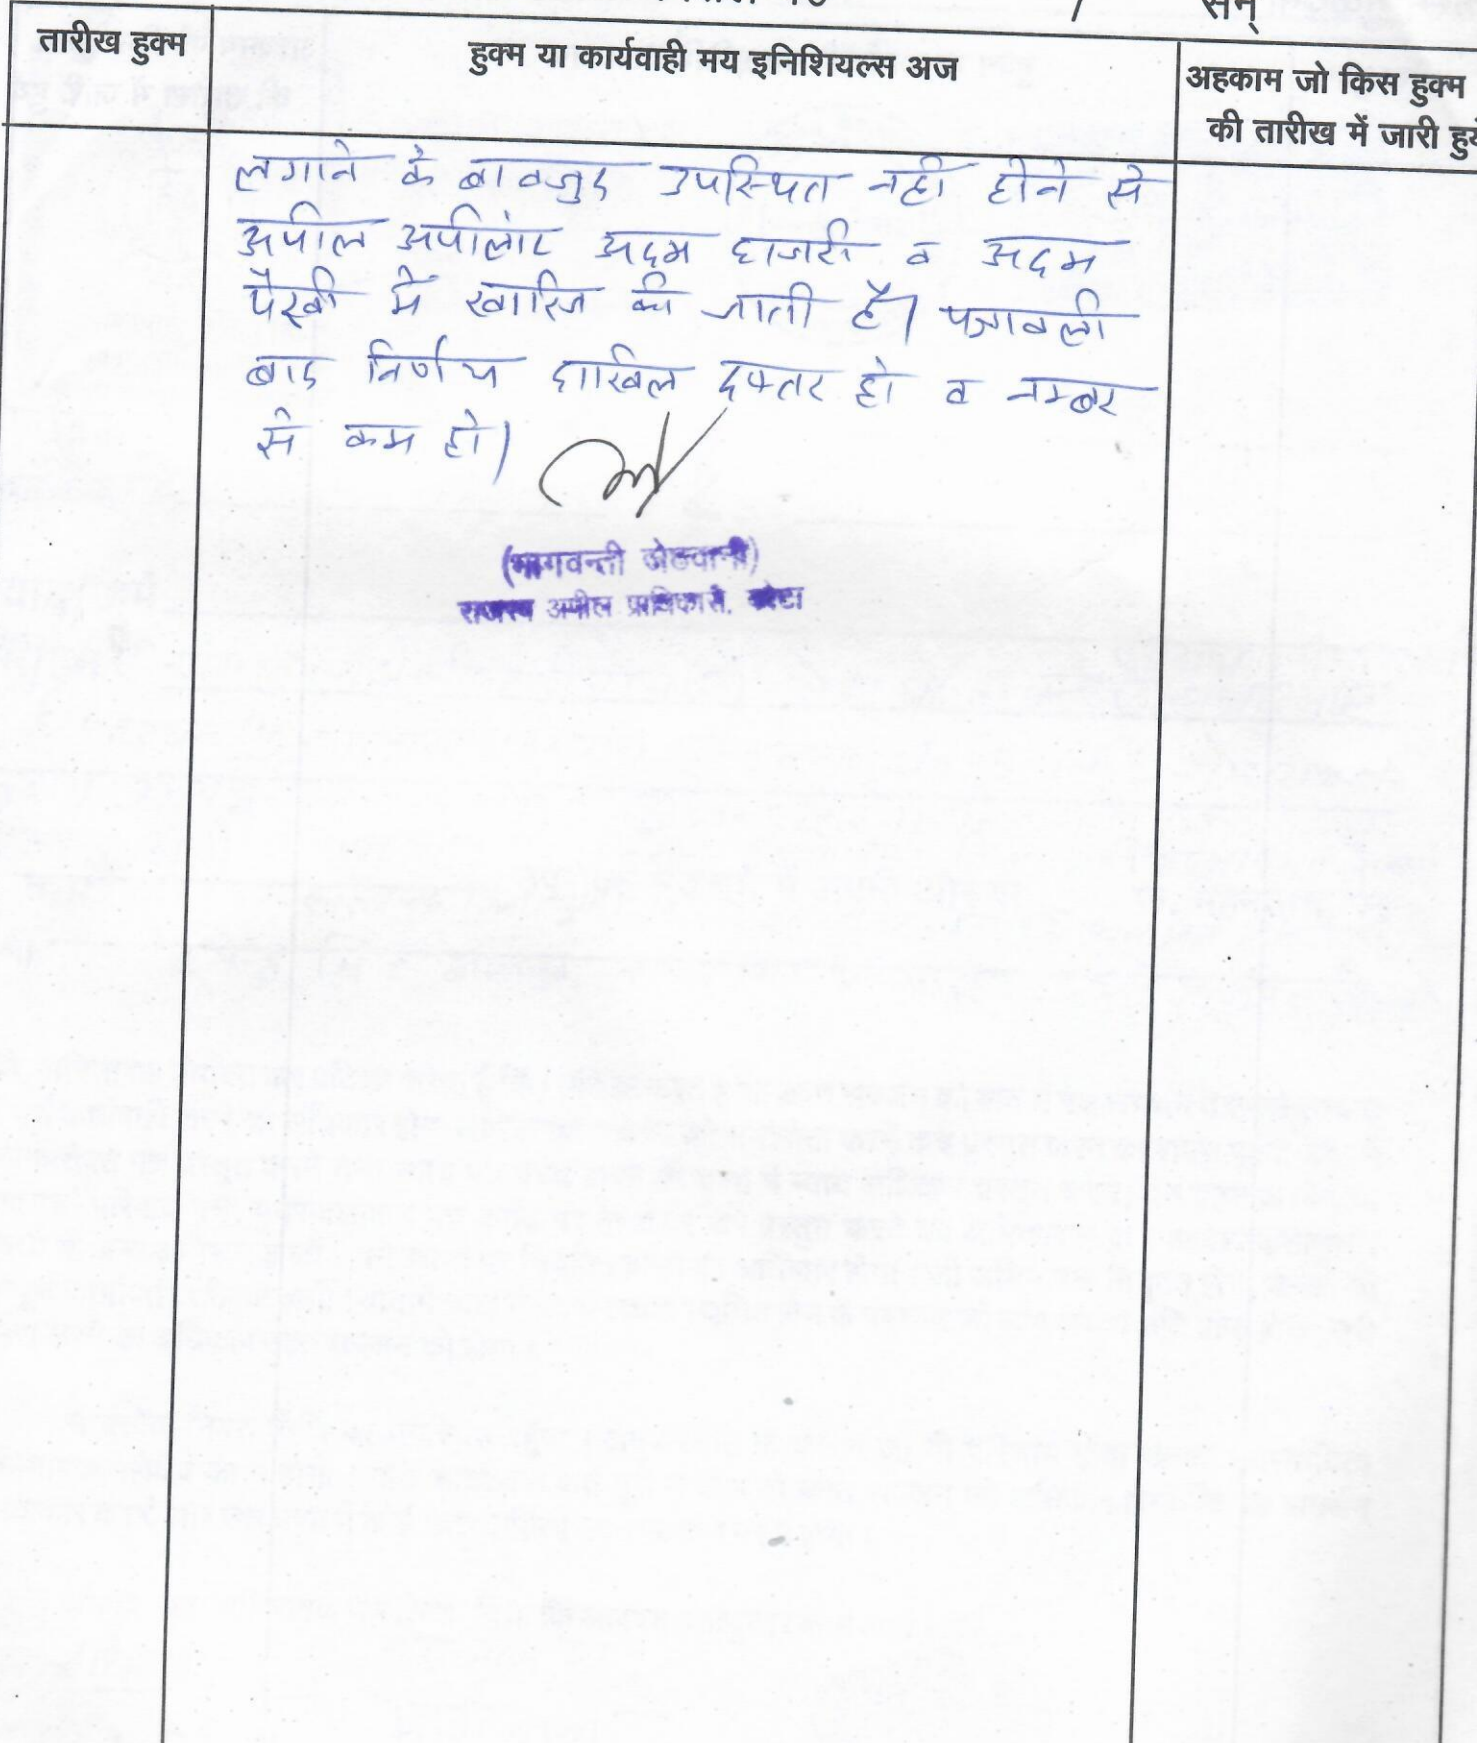 सन्
तारीख हुक्म
हुक्म या कार्यवाही मय इनिशियल्स अज
अहकाम जो किस हुक्म
की तारीख में जारी हुये
लगाने के बावजुद उपस्थित नहीं होने से
अपील अपीलांट अदम हाजरी व अदम
पैरवी में खारिज की जाती है। पत्रावली
बाद निर्णय दाखिल दफ्तर हो व नम्बर
से कम हो।
(भागवन्ती जेठवानी)
राजस्व अपील प्राधिकारी, कोटा